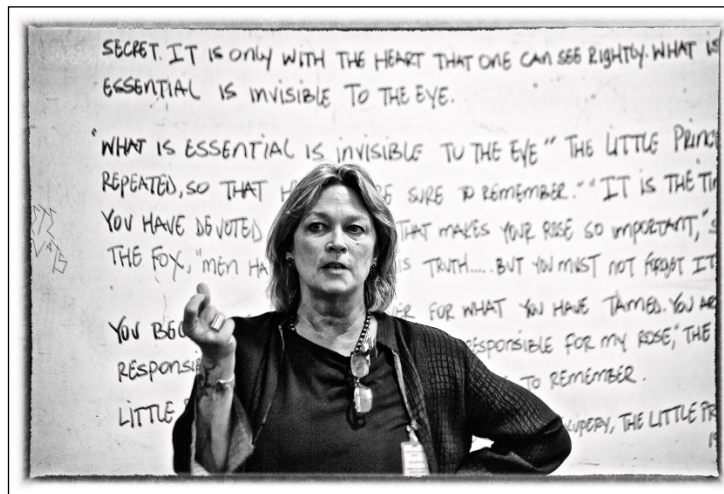 SECRET. IT IS ONLY WITH THE HEART THAT ONE CAN SEE RIGHTLY. WHAT IS
ESSENTIAL IS INVISIBLE TO THE EYE.
"WHAT IS ESSENTIAL IS INVISIBLE TO THE EYE" THE LITTLE PRINC
REPEATED, SO THAT H RE SURE TO REMEMBER." "IT IS THE TI
YOU HAVE DEVOTED THAT MAKES YOUR ROSE SO IMPORTANT," S
THE FOX, "MEN HA IS TRUTH.... BUT YOU MUST NOT FORGET IT
YOU BEC ER FOR WHAT YOU HAVE TAMED. YOU AR
RESPONSI ESPONSIBLE FOR MY ROSE," THE
LITTLE TO REMEMBER.
EXUPERY, THE LITTLE PR